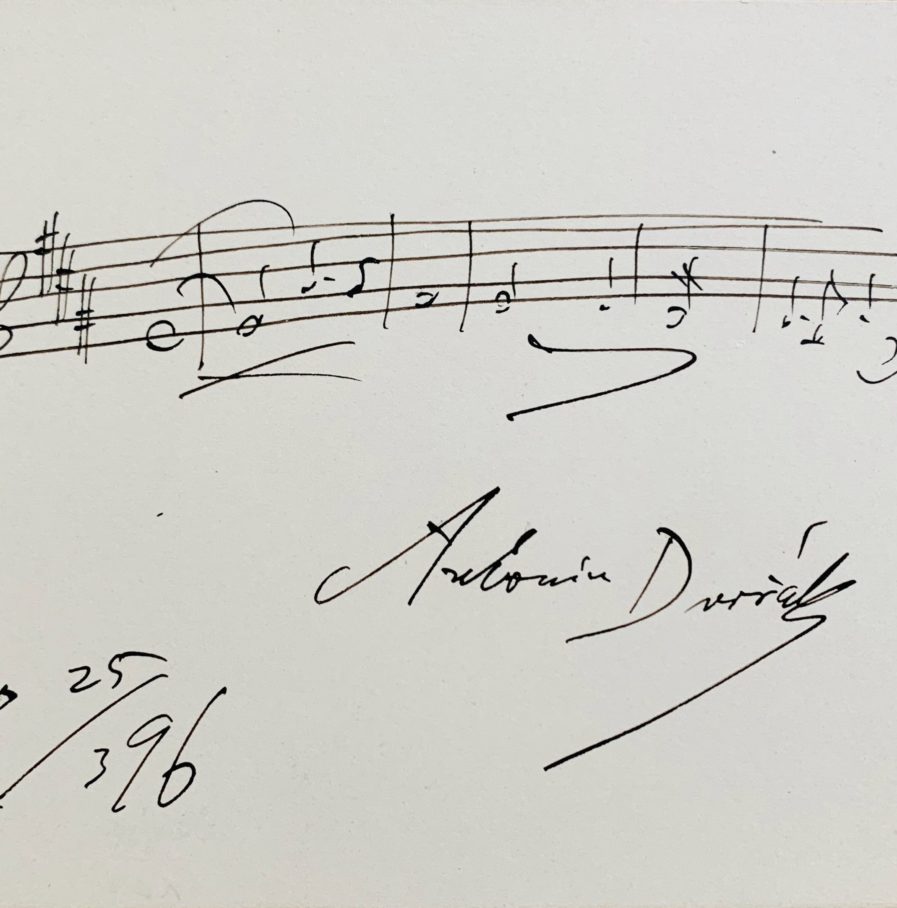 Antonín Dvořák
25/396